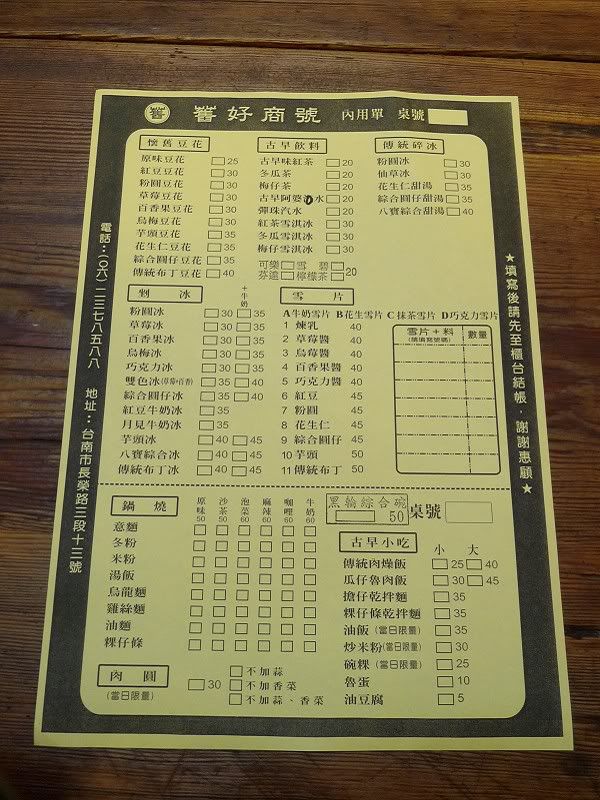 舊 舊好商號 內用單 桌號
電話:(〇六)二三七八五八八 地址:台南市長榮路三段十三號
★填寫後請先至櫃台結帳,謝謝惠顧★
懷舊豆花
原味豆花 25
紅豆豆花 30
粉圓豆花 30
草莓豆花 30
百香果豆花 30
烏梅豆花 30
芋頭豆花 35
花生仁豆花 35
綜合圓仔豆花 35
傳統布丁豆花 40
古早飲料
古早味紅茶 20
冬瓜茶 20
梅仔茶 20
古早阿婆冰水 20
彈珠汽水 20
紅茶雪淇冰 30
冬瓜雪淇冰 30
梅仔雪淇冰 30
可樂 雪碧
芬達 檸檬茶 20
傳統碎冰
粉圓冰 30
仙草冰 30
花生仁甜湯 35
綜合圓仔甜湯 35
八寶綜合甜湯 40
剉冰 +牛奶
粉圓冰 30 35
草莓冰 30 35
百香果冰 30 35
烏梅冰 30 35
巧克力冰 30 35
雙色冰(草莓+百香) 35 40
綜合圓仔冰 35 40
紅豆牛奶冰 35
月見牛奶冰 35
芋頭冰 40 45
八寶綜合冰 40 45
傳統布丁冰 40 45
雪片
A牛奶雪片 B花生雪片 C抹茶雪片 D巧克力雪片
1 煉乳 40
2 草莓醬 40
3 烏梅醬 40
4 百香果醬 40
5 巧克力醬 40
6 紅豆 45
7 粉圓 45
8 花生仁 45
9 綜合圓仔 45
10 芋頭 50
11 傳統布丁 50
雪片+料 數量
(請填寫號碼)
鍋燒
原味50 沙茶50 泡菜60 麻辣60 咖哩60 牛奶60
意麵
冬粉
米粉
湯飯
烏龍麵
雞絲麵
油麵
粿仔條
肉圓
(當日限量)
30
不加蒜
不加香菜
不加蒜、香菜
黑輪綜合碗 50
桌號
古早小吃 小 大
傳統肉燥飯 25 40
瓜仔魯肉飯 30 45
擔仔乾拌麵 35
粿仔條乾拌麵 35
油飯(當日限量) 35
炒米粉(當日限量) 30
碗粿(當日限量) 25
魯蛋 10
油豆腐 5